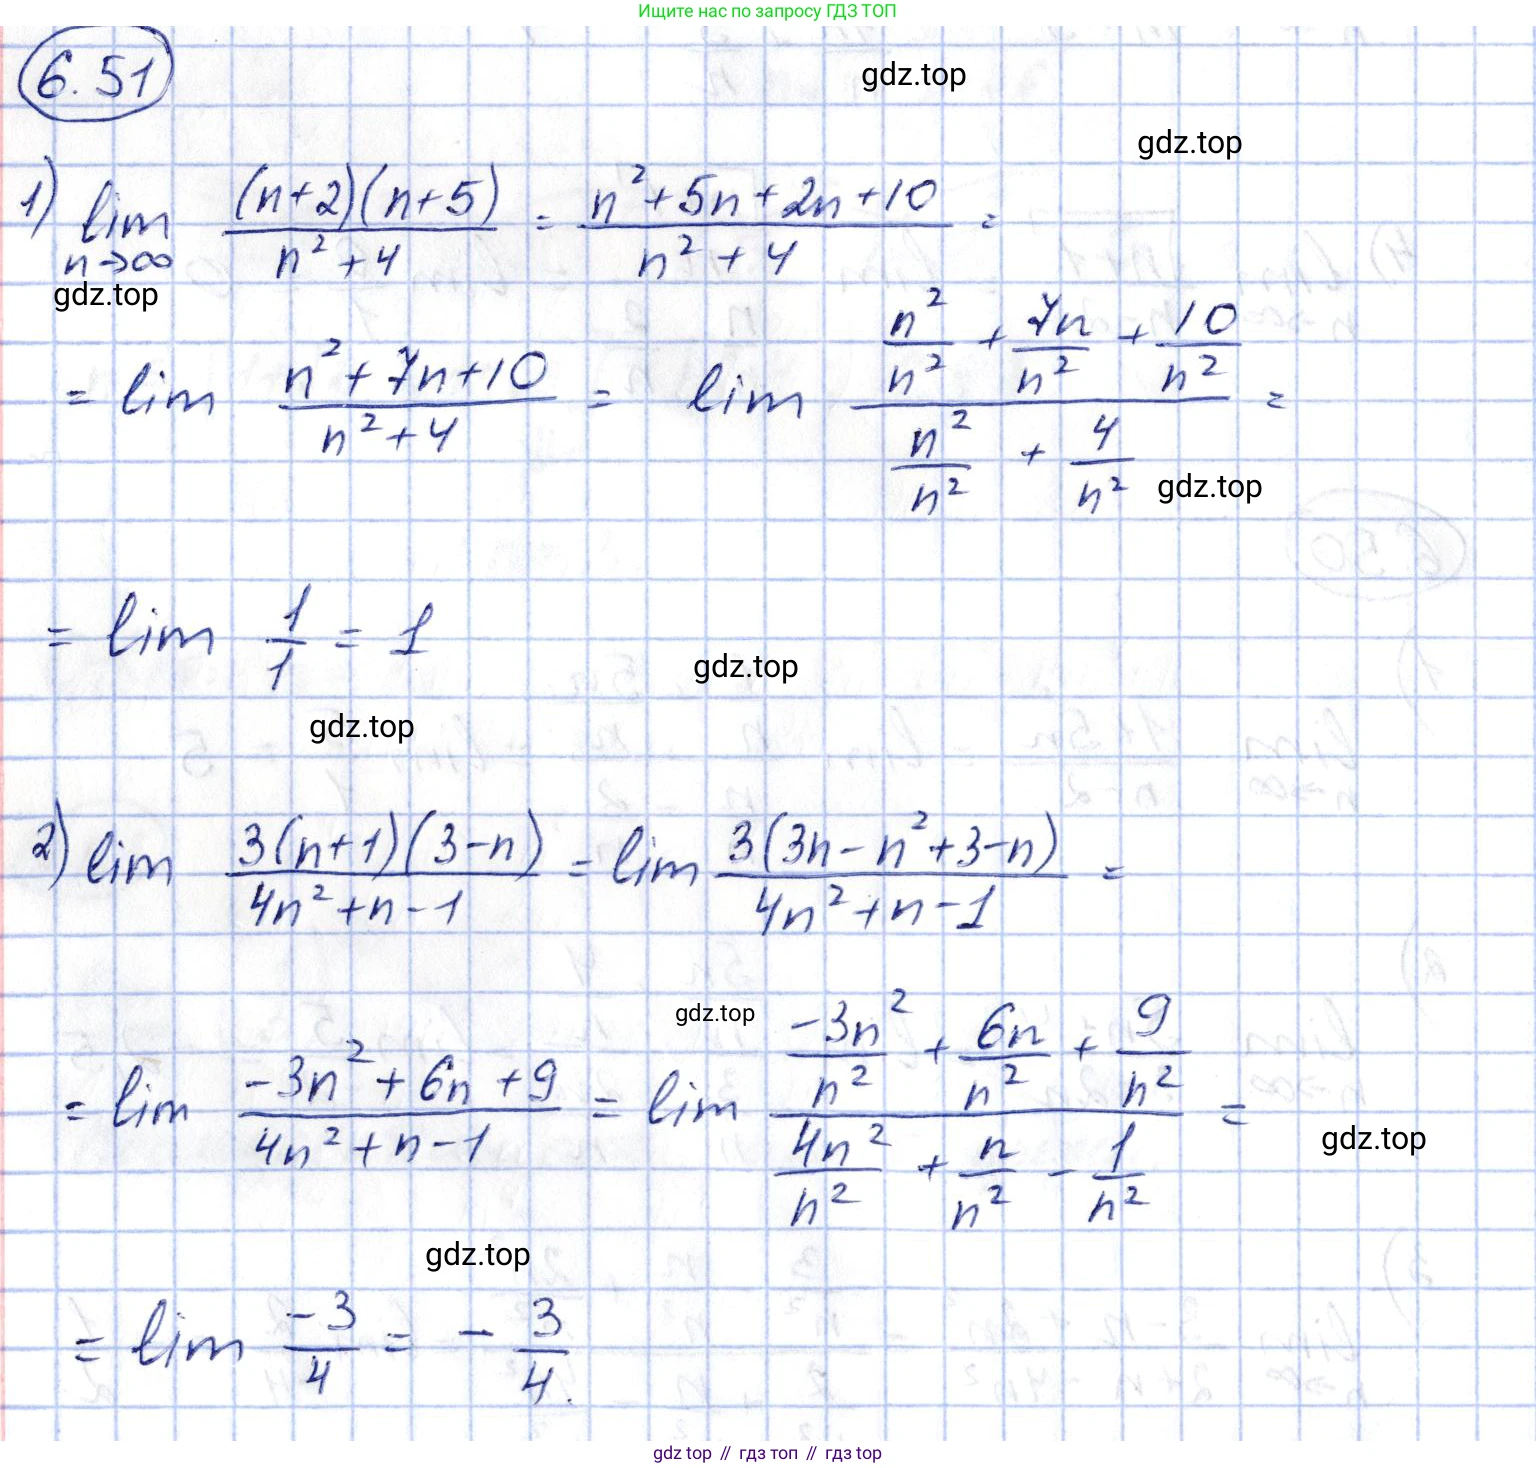 Ищите нас по запросу ГДЗ ТОП
6.51
gdz.top
gdz.top
1) lim n→∞ (n+2)(n+5) / n²+4 = n²+5n+2n+10 / n²+4 =
gdz.top
= lim n²+7n+10 / n²+4 = lim n²/n² + 7n/n² + 10/n² / n²/n² + 4/n² =
gdz.top
= lim 1/1 = 1
gdz.top
gdz.top
2) lim 3(n+1)(3-n) / 4n²+n-1 = lim 3(3n-n²+3-n) / 4n²+n-1 =
gdz.top
= lim -3n²+6n+9 / 4n²+n-1 = lim -3n²/n² + 6n/n² + 9/n² / 4n²/n² + n/n² - 1/n² =
gdz.top
gdz.top
= lim -3/4 = - 3/4.
gdz top // гдз топ // гдз top